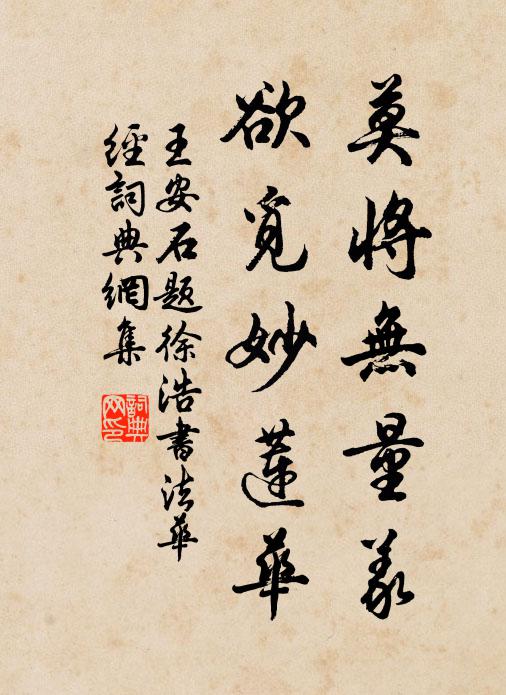 莫將無量義
欲覓妙蓮華
王安石題徐浩書法華
經詞典網集
詞典
网印